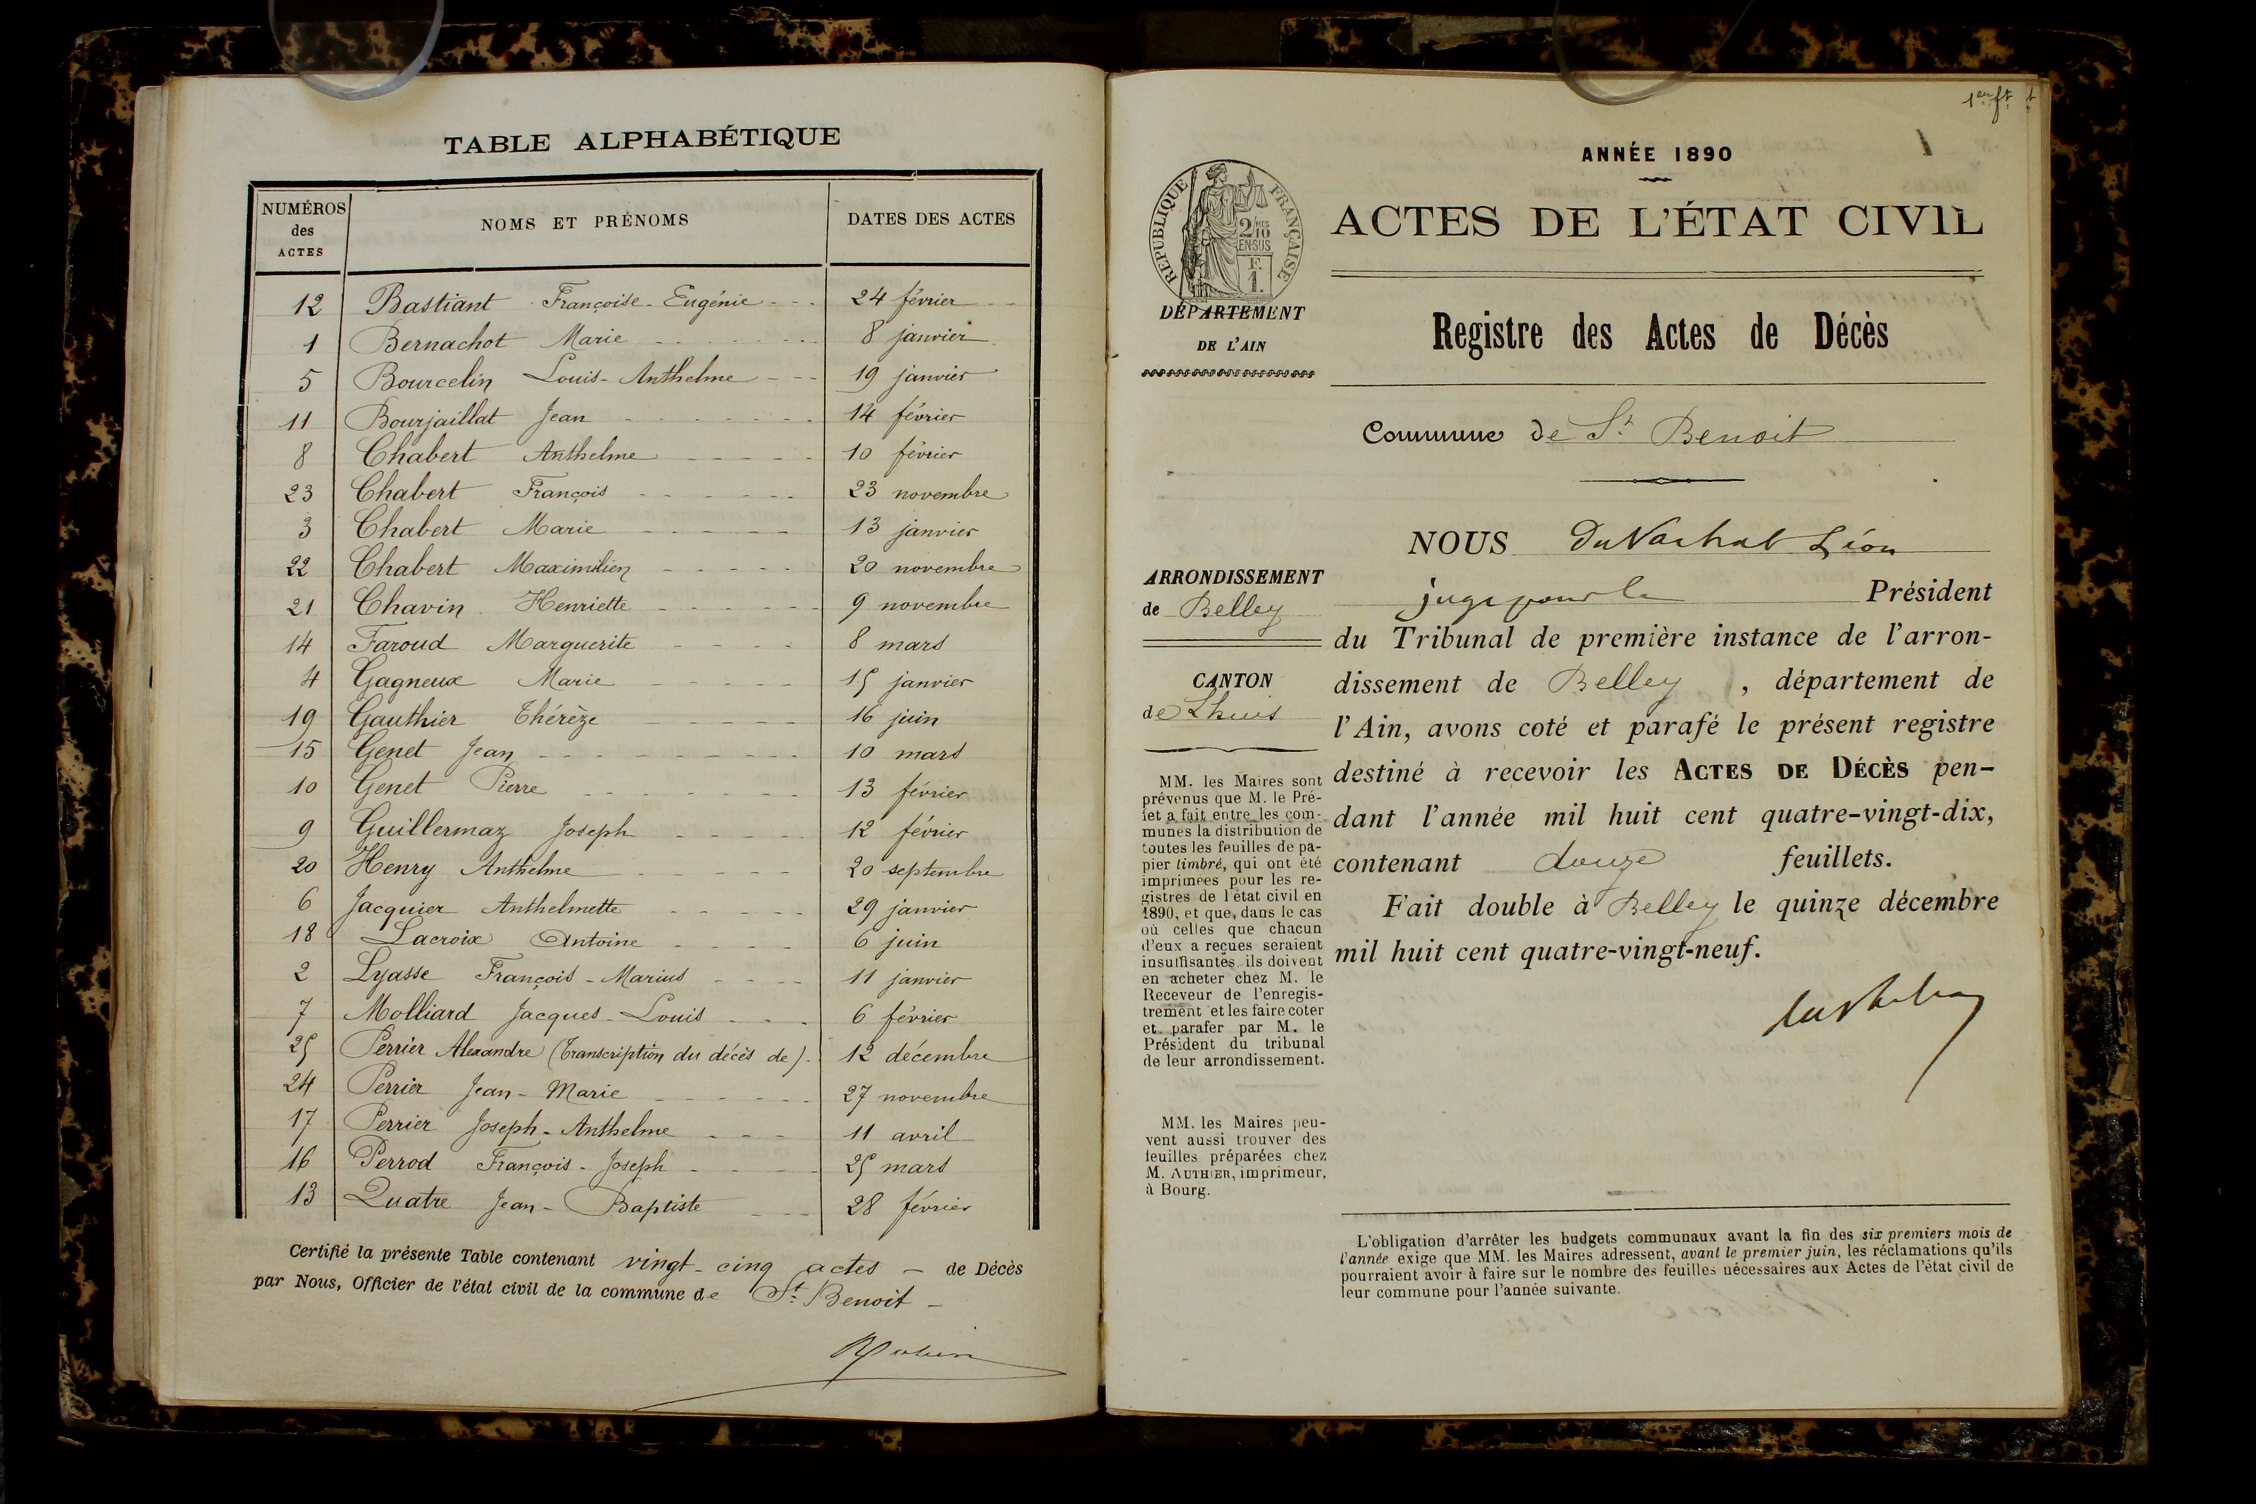 TABLE ALPHABÉTIQUE
NUMÉROS
des
ACTES
NOMS ET PRÉNOMS
DATES DES ACTES
12 Bastiant Françoise-Eugénie 24 février
1 Bernachot Marie 8 janvier
5 Bourcelin Louis-Anthelme 19 janvier
11 Bourjaillat Jean 14 février
8 Chabert Anthelme 10 février
23 Chabert François 23 novembre
3 Chabert Marie 13 janvier
22 Chabert Maximilien 20 novembre
21 Chavin Henriette 9 novembre
14 Faroud Marguerite 8 mars
4 Gagneux Marie 15 janvier
19 Gauthier Thérèze 16 juin
15 Genet Jean 10 mars
10 Genet Pierre 13 février
9 Guillermaz Joseph 12 février
20 Henry Anthelme 20 septembre
6 Jacquier Anthelmette 29 janvier
18 Lacroix Antoine 6 juin
2 Lyasse François-Marius 11 janvier
7 Molliard Jacques-Louis 6 février
25 Perrier Alexandre (Transcription du décès de). 12 décembre
24 Perrier Jean-Marie 27 novembre
17 Perrier Joseph-Anthelme 11 avril
16 Perrod François-Joseph 25 mars
13 Quatre Jean-Baptiste 28 février
Certifié la présente Table contenant vingt-cinq actes — de Décès
par Nous, Officier de l'état civil de la commune de St Benoit —
1er ft
ANNÉE 1890
RÉPUBLIQUE FRANÇAISE
2/10
EN SUS
F.
1.
ACTES DE L'ÉTAT CIVIL
DÉPARTEMENT
DE L'AIN
Registre des Actes de Décès
Commune de St Benoit
ARRONDISSEMENT
de Belley
CANTON
de Lhuis
NOUS Du Vachat Léon
juge pour le Président
du Tribunal de première instance de l'arron-
dissement de Belley, département de
l'Ain, avons coté et parafé le présent registre
destiné à recevoir les ACTES DE DÉCÈS pen-
dant l'année mil huit cent quatre-vingt-dix,
contenant douze feuillets.
Fait double à Belley le quinze décembre
mil huit cent quatre-vingt-neuf.
MM. les Maires sont
prévenus que M. le Pré-
fet a fait entre les com-
munes la distribution de
toutes les feuilles de pa-
pier timbré, qui ont été
imprimées pour les re-
gistres de l'état civil en
1890, et que, dans le cas
où celles que chacun
d'eux a reçues seraient
insuffisantes ils doivent
en acheter chez M. le
Receveur de l'enregis-
trement et les faire coter
et parafer par M. le
Président du tribunal
de leur arrondissement.
MM. les Maires peu-
vent aussi trouver des
feuilles préparées chez
M. AUTHIER, imprimeur,
à Bourg.
L'obligation d'arrêter les budgets communaux avant la fin des six premiers mois de
l'année exige que MM. les Maires adressent, avant le premier juin, les réclamations qu'ils
pourraient avoir à faire sur le nombre des feuilles nécessaires aux Actes de l'état civil de
leur commune pour l'année suivante.